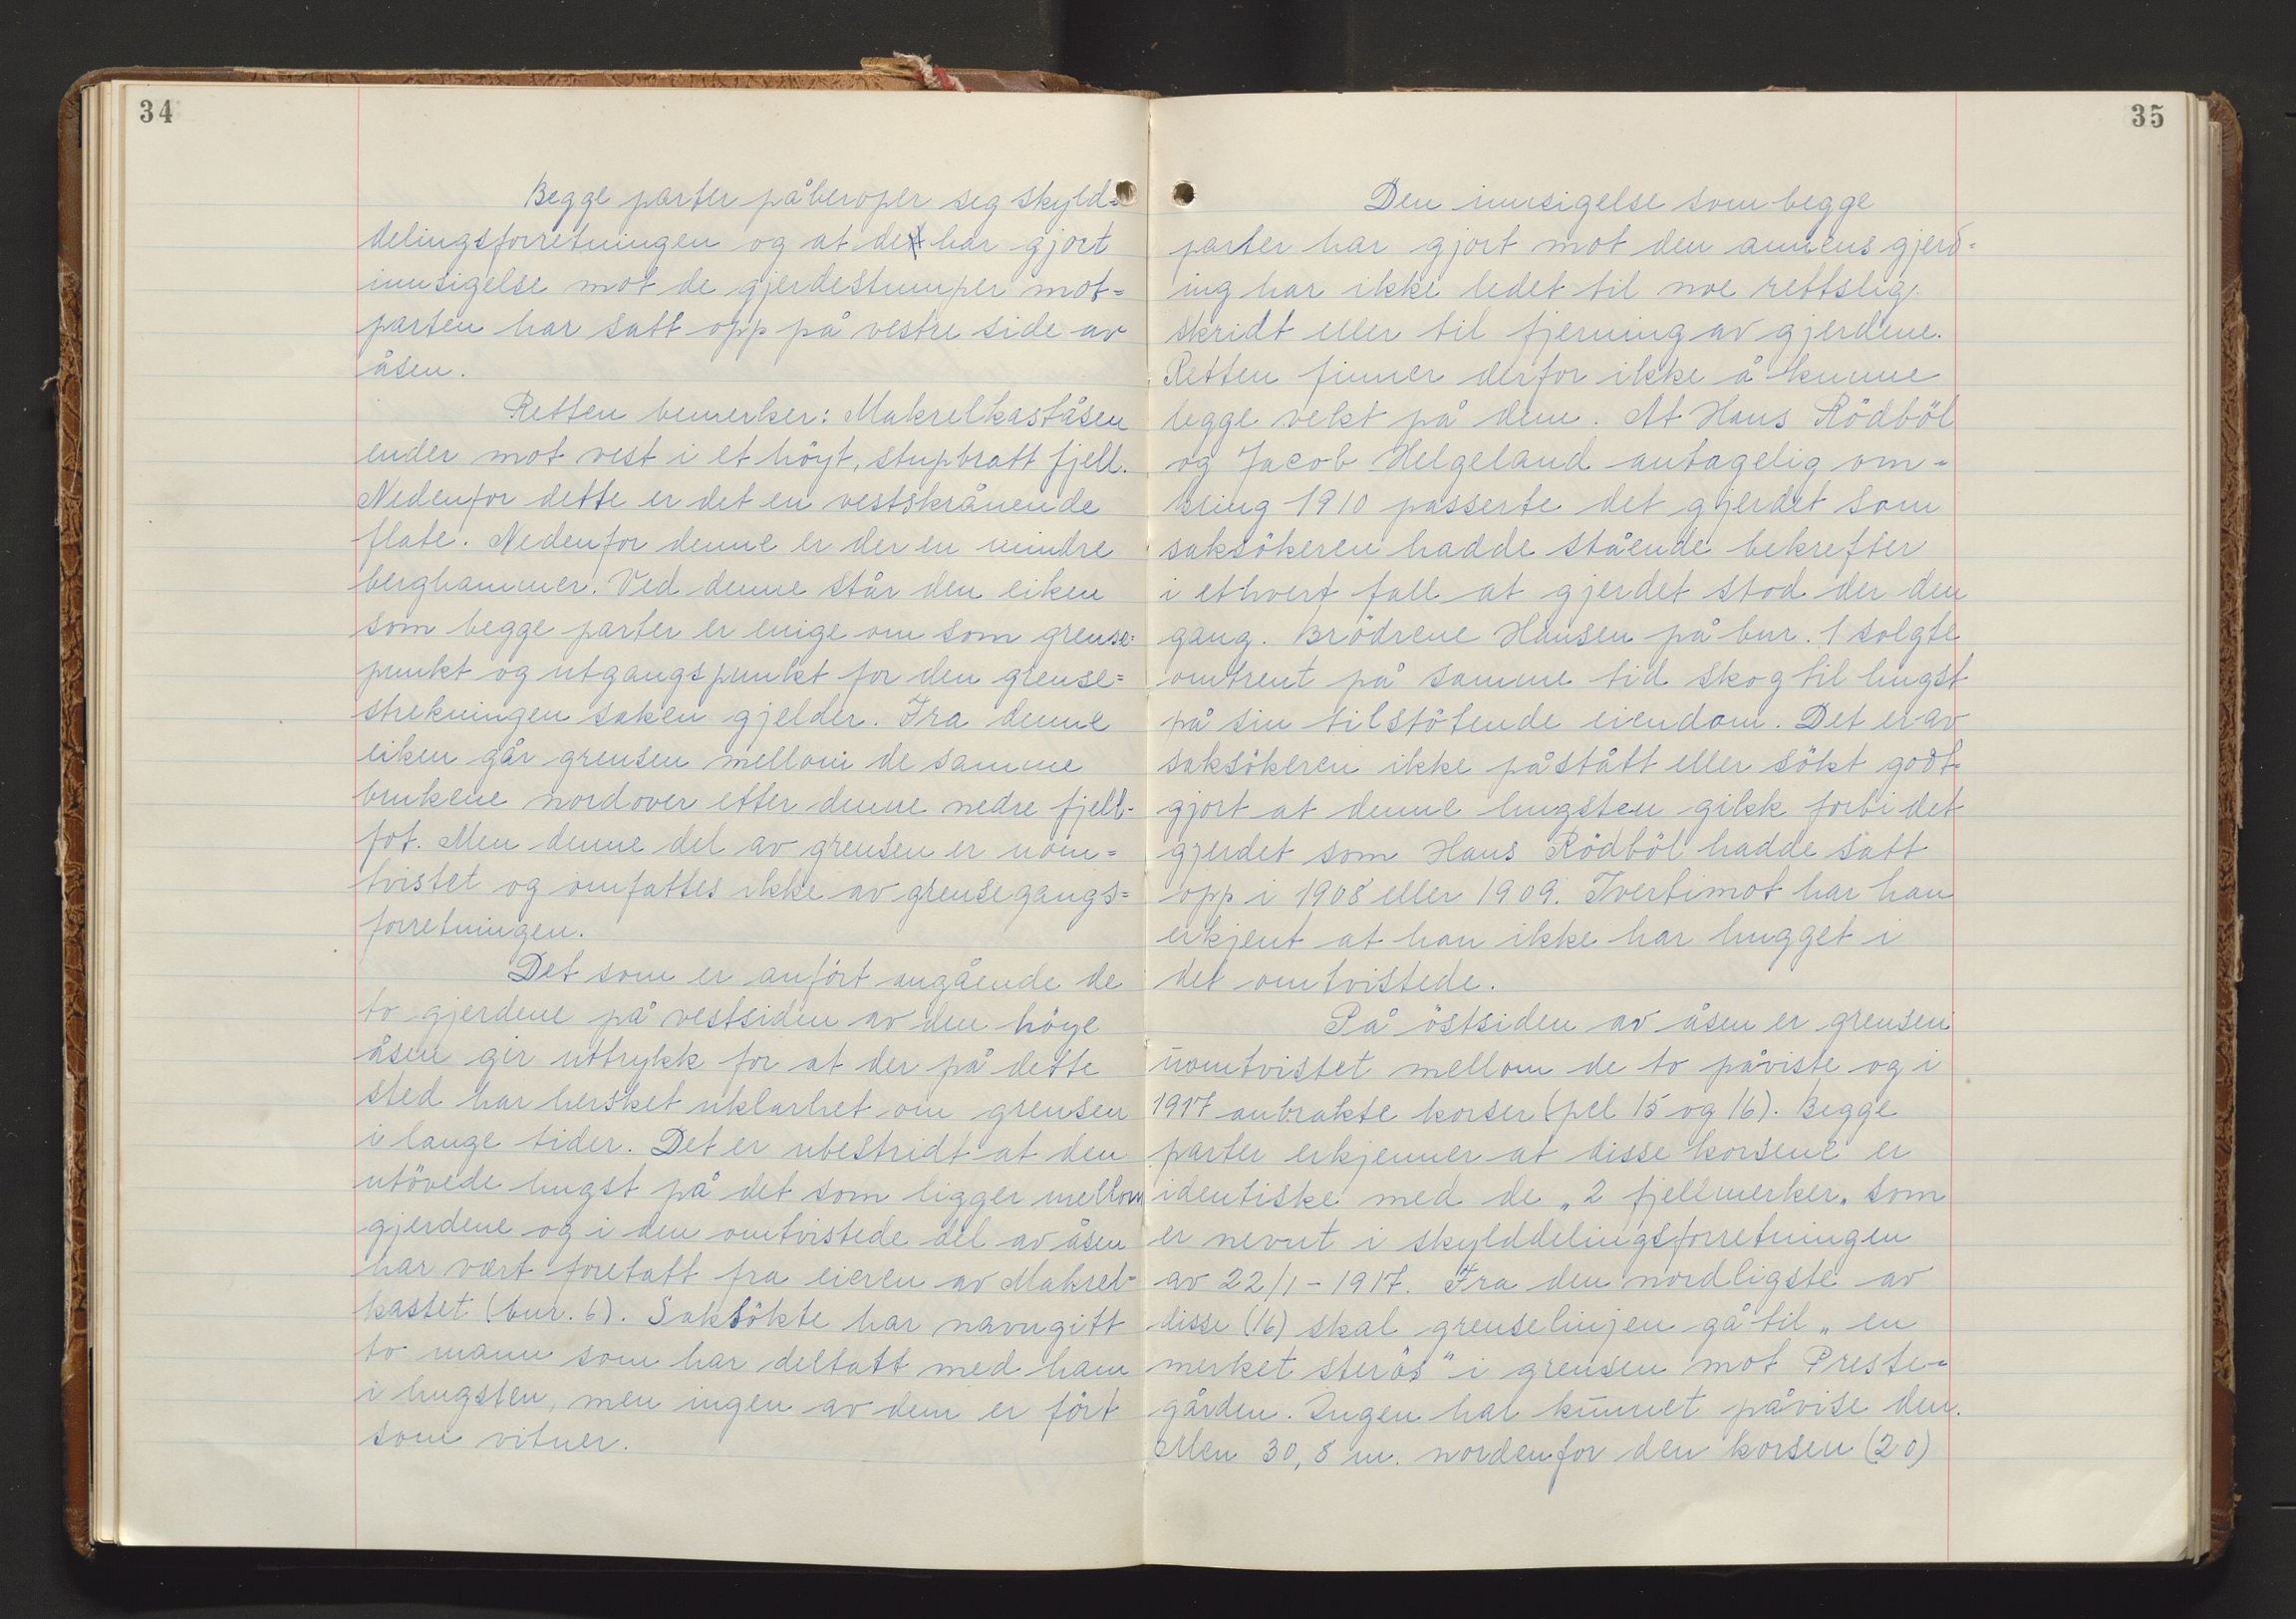 34
Begge parter påberoper seg skyld=
delingsforretningen og at de har gjort
innsigelse mot de gjerdestumper mot=
parten har satt opp på vestre side av
åsen.
Retten bemerker: Makrelkaståsen
ender mot vest i et höyt, stupbratt fjell.
Nedenfor dette er det en vestskrånende
flate. Nedenfor denne er der en mindre
berghammer. Ved denne står den eiken
som begge parter er enige om som grense=
punkt og utgangspunkt for den grense=
strekningen saken gjelder. Fra denne
eiken går grensen mellom de samme
brukene nordover etter denne nedre fjell-
fot. Men denne del av grensen er uom=
tvistet og omfattes ikke av grensegangs=
forretningen.
Det som er anfört angående de
to gjerdene på vestsiden av den höye
åsen gir uttrykk for at der på dette
sted har hersket uklarhet om grensen
i lange tider. Det er ubestridt at den
utövede hugst på det som ligger mellom
gjerdene og i den omtvistede del av åsen
har vært foretatt fra eieren av Makrel-
kastet (bnr. 6). Saksökte har navngitt
to mann som har deltatt med ham
i hugsten, men ingen av dem er fört
som vitner.
35
Den innsigelse som begge
parter har gjort mot den annens gjerd=
ing har ikke ledet til noe rettslig
skridt eller til fjerning av gjerdene.
Retten finner derfor ikke å kunne
legge vekt på dem. At Hans Rödböl
og Jacob Helgeland antagelig om-
kring 1910 passerte det gjerdet som
saksökeren hadde stående bekrefter
i ethvert fall at gjerdet stod der den
gang. Brödrene Hansen på bnr. 1 solgte
omtrent på samme tid skog til hugst
på sin tilstötende eiendom. Det er av
saksökeren ikke påstått eller sökt godt=
gjort at denne hugsten gikk forbi det
gjerdet som Hans Rödböl hadde satt
opp i 1908 eller 1909. Tvertimot har han
erkjent at han ikke har hugget i
det omtvistede.
På östsiden av åsen er grensen
uomtvistet mellom de to påviste og i
1917 anbrakte korser (pel 15 og 16). Begge
parter erkjenner at disse korsene er
identiske med de „2 fjellmerker„ som
er nevnt i skylddelingsforretningen
av 22/1-1917. Fra den nordligste av
disse (16) skal grenselinjen gå til „en
merket sterös" i grensen mot Preste-
gården. Ingen har kunnet påvise den.
Men 30,8 m. nordenfor den korsen (20)